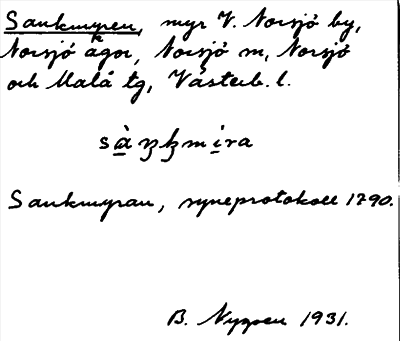 Sankmyren, myr V. Norsjö by,
Norsjö ägor, Norsjö sn, Norsjö
och Malå tg, Västerb. l.
Sankmyran, syneprotokoll 1790.
B. Nygren 1931.